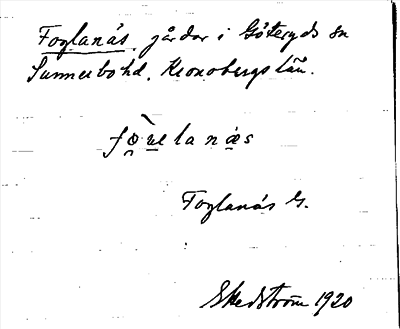 Foglanäs, gårdar i Göteryds sn
Sunnerbo hd. Kronobergs län.
Foglanäs G.
Skedström 1920